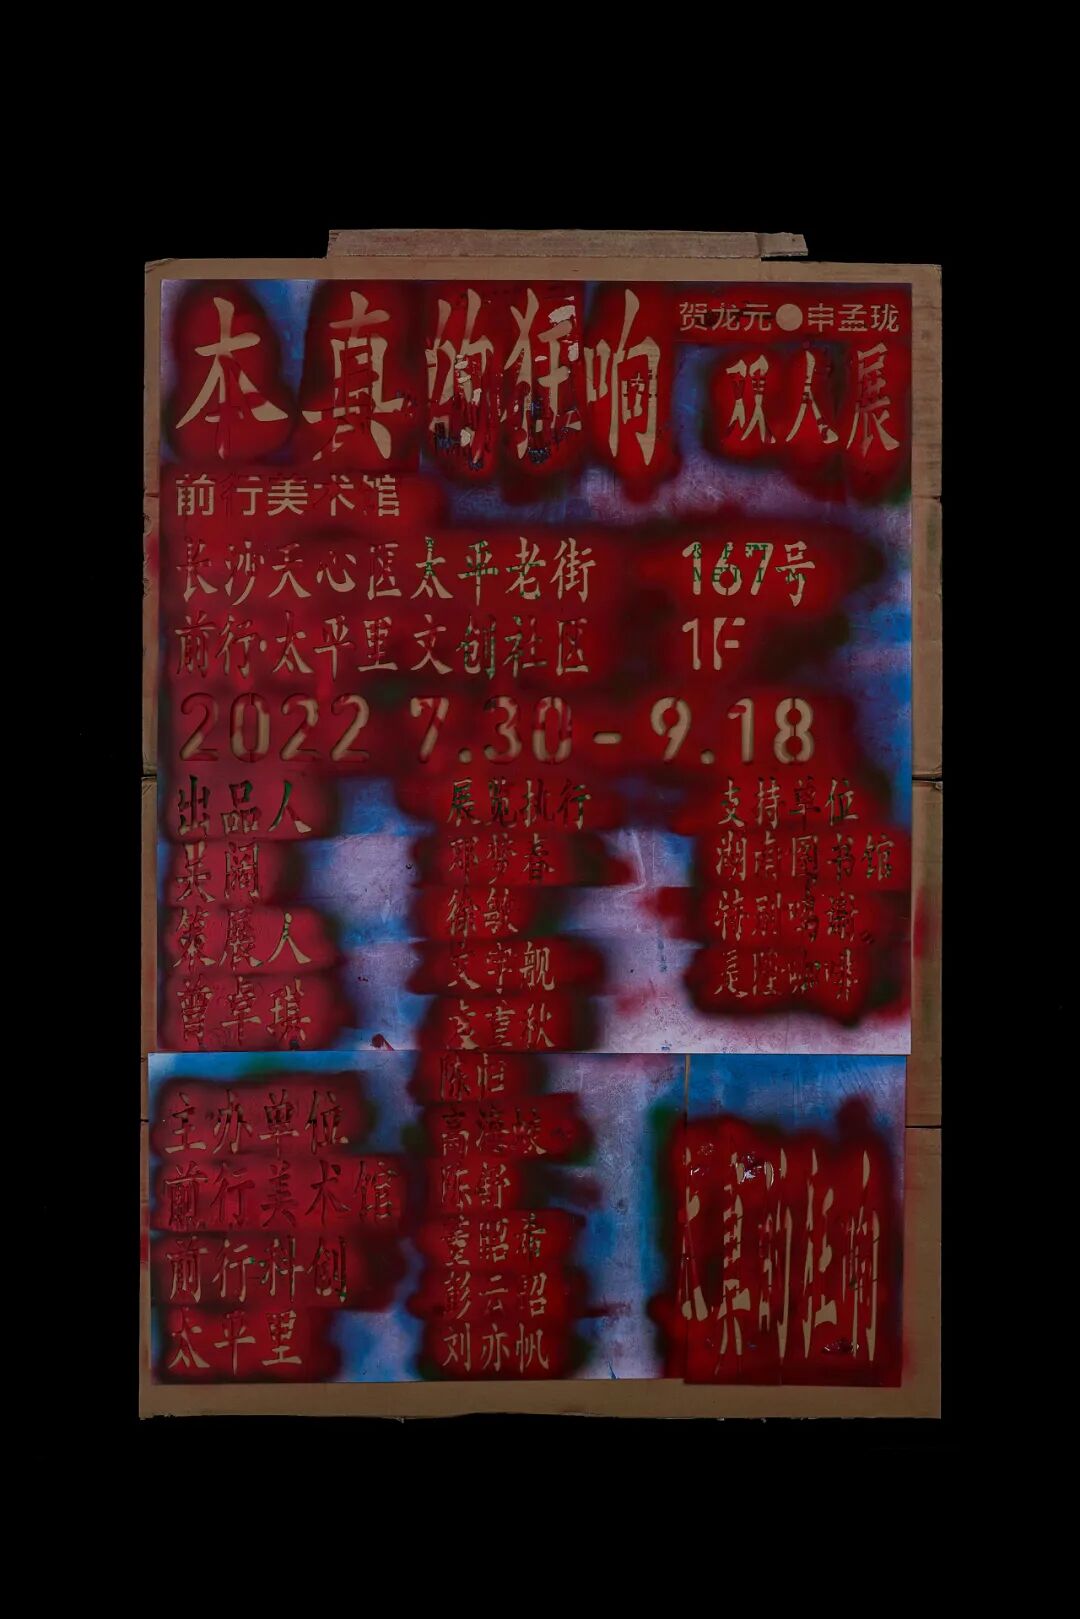 本真的狂响
贺龙元●申孟珑
双人展
前行美术馆
长沙天心区太平老街 167号
前行·太平里文创社区 1F
2022 7.30-9.18
出品人
吴阔
策展人
曾卓琪
展览执行
邓梦春
徐敏
文宇舰
陈归
高海蛟
陈舒
董昭希
彭云昭
刘亦帆
支持单位
湖南图书馆
特别鸣谢
主办单位
前行美术馆
前行·科创
太平里
本真的狂响